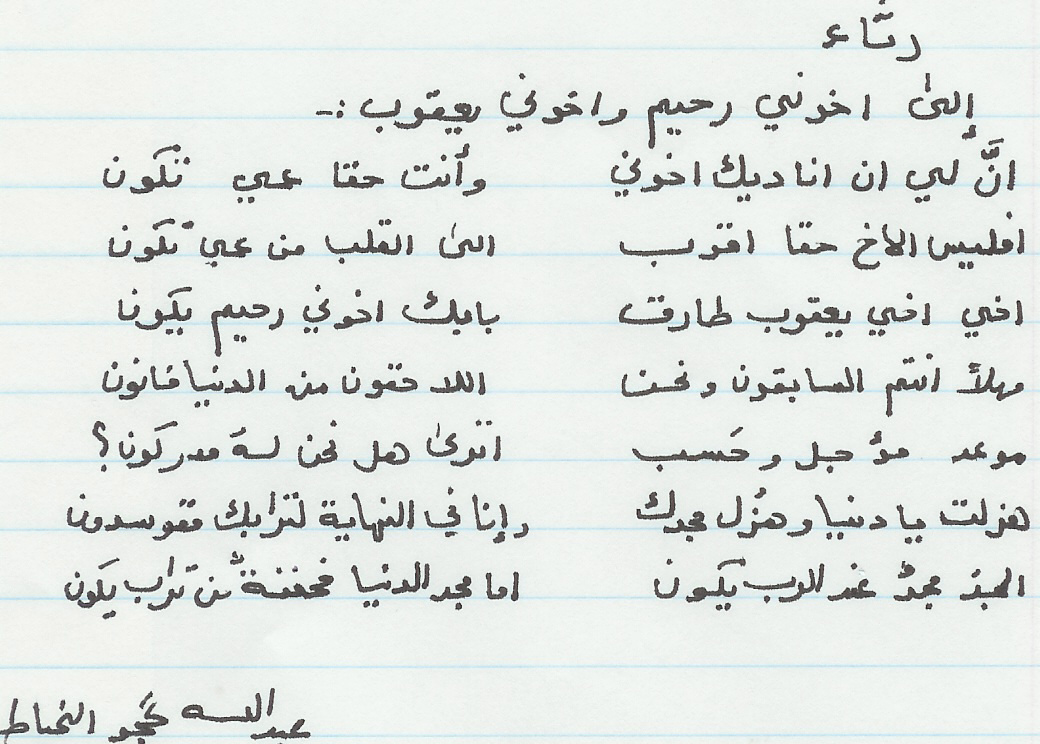 رثاء
إلىٰ اخوني رحيم واخوني يعقوب :-
انَّ لي ان اناديك اخوني وأنت حقا عني تكون
افليس الاخ حقا اقرب الىٰ القلب من عمي تكون
اخي اخي يعقوب طارق بابك اخوني رحيم يكونا
مهلاً انتم السابقون ونحن اللاحقون من الدنيا فانون
موعد مؤجل وحَسب اترىٰ هل نحن لهَ مدركونا؟
هزلت يا دنيا وهزُل مجدك وإنا في النهاية لترابك متوسدون
المجد مجدٌ عند الرب يكون اما مجد الدنيا فحفنةٌ من تراب يكون
عبد الله ججو الخياط